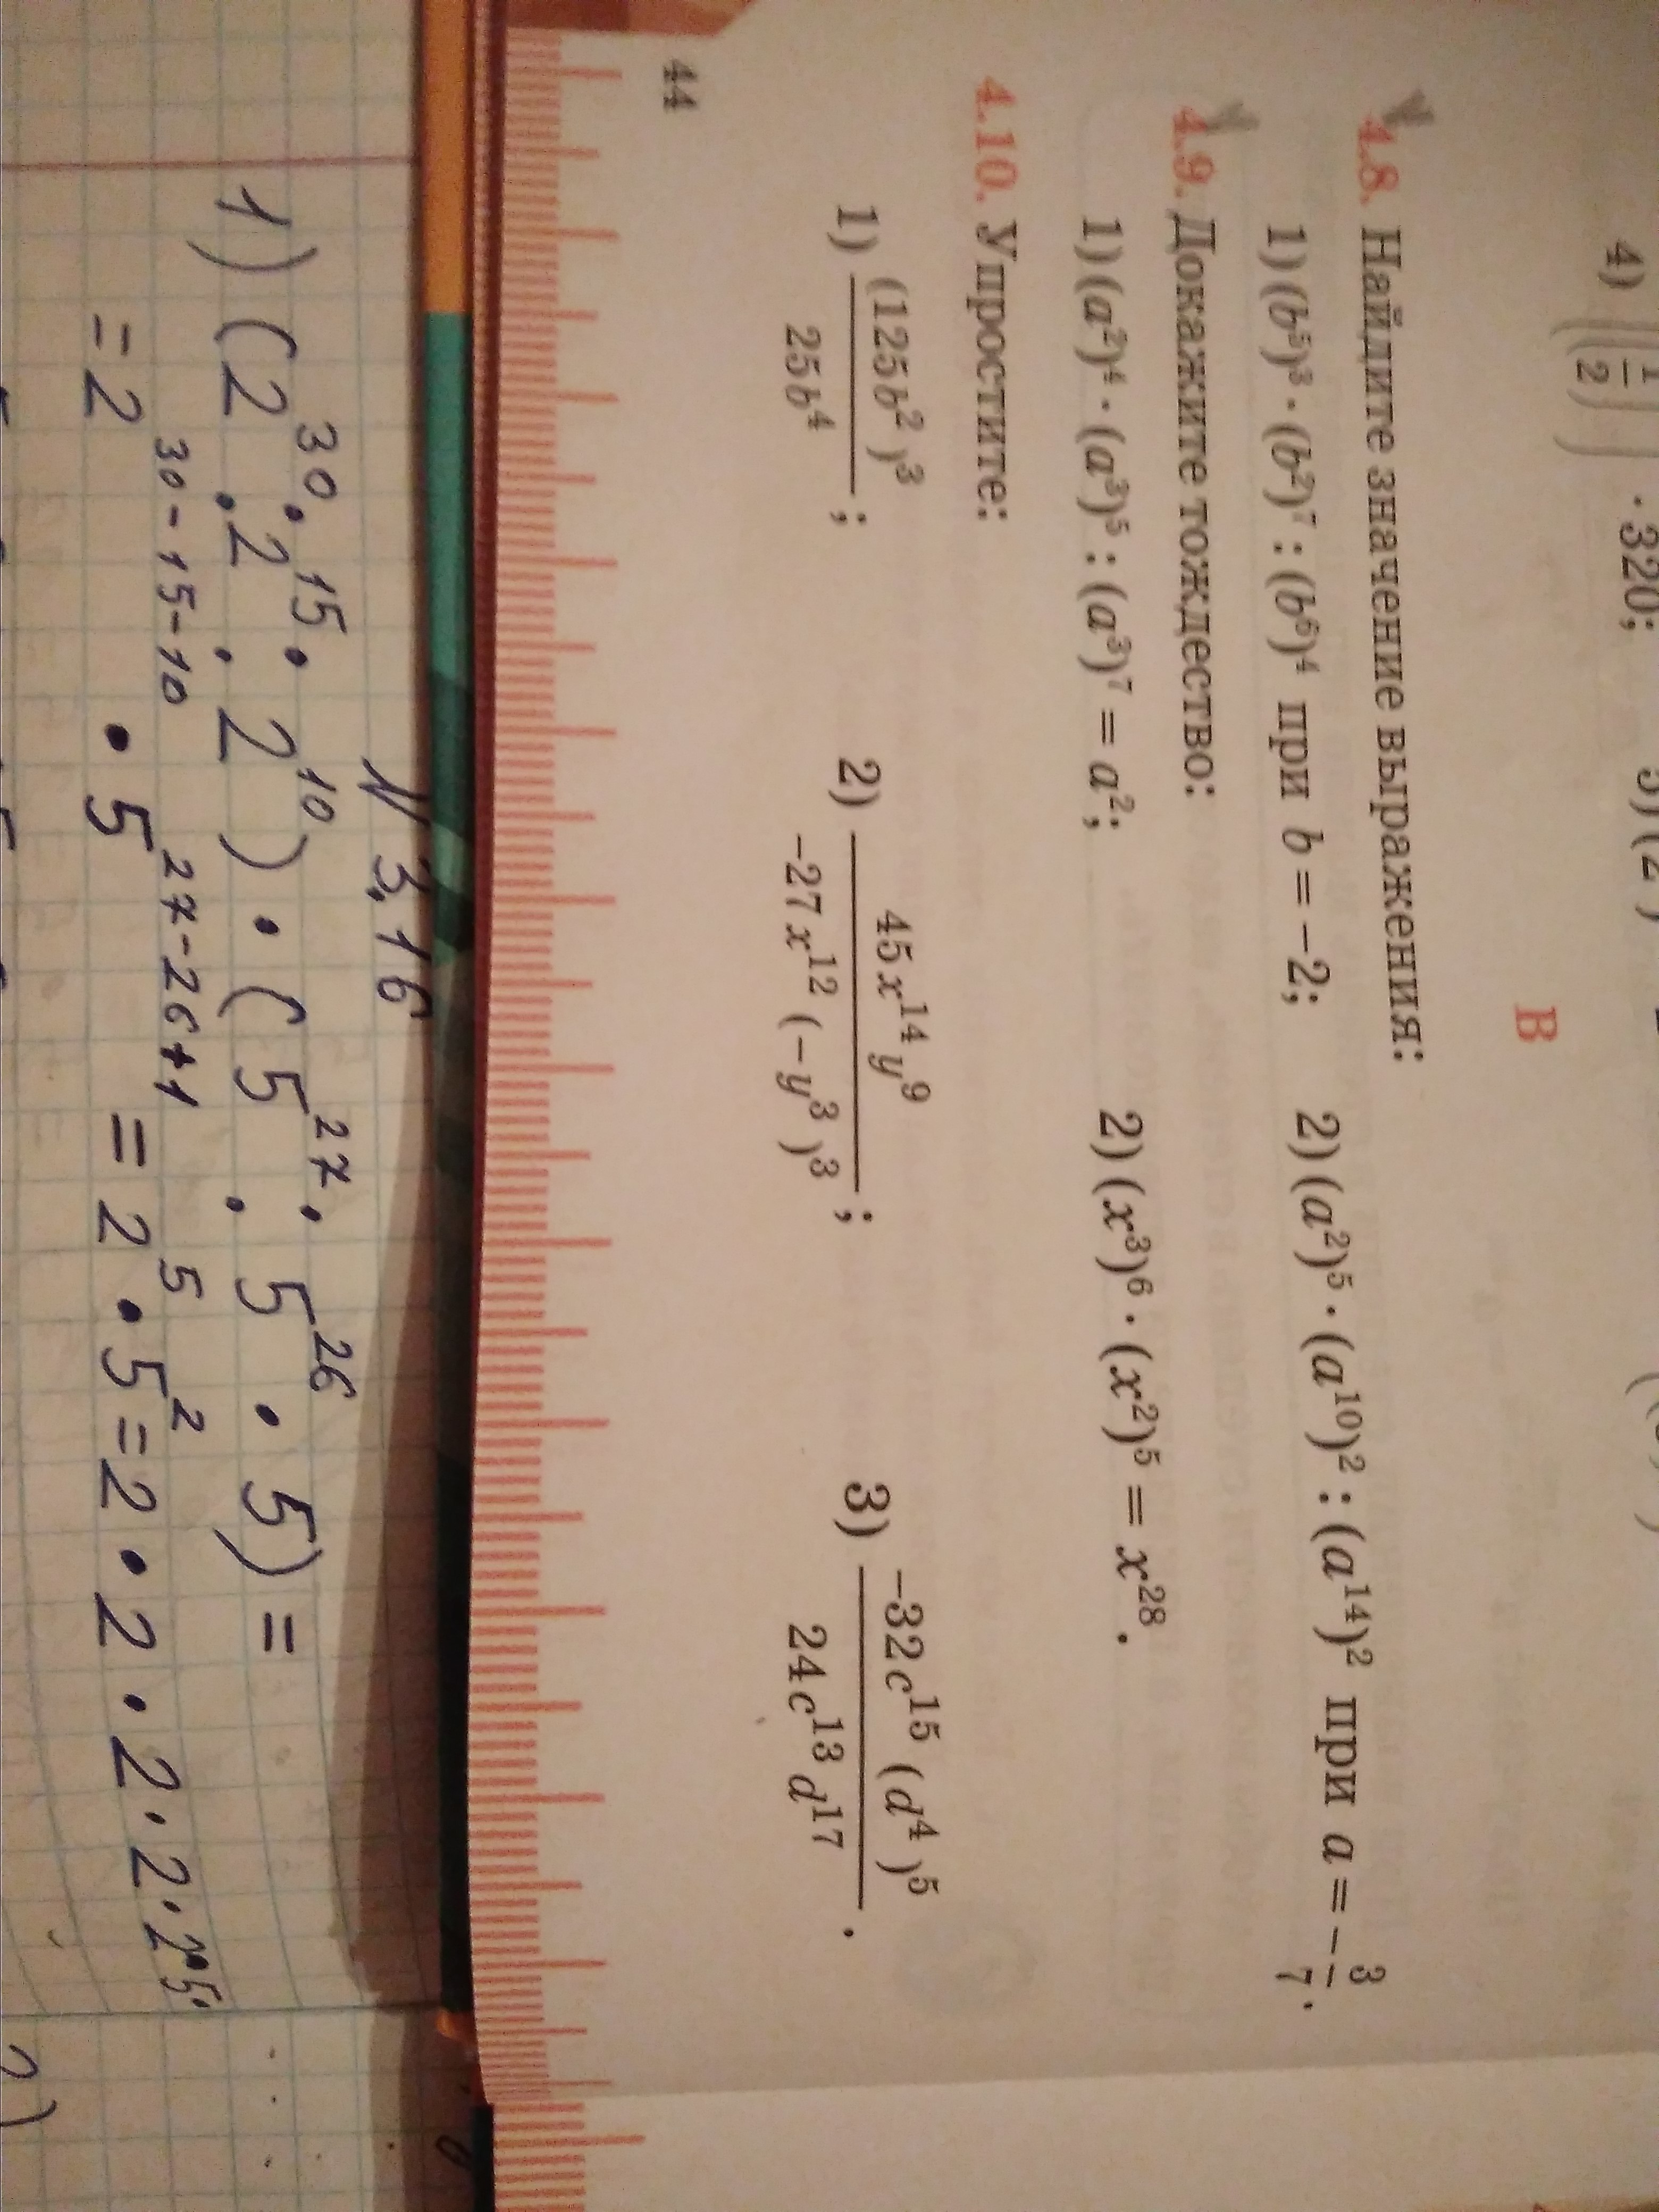 4) ((1/2)) · 320;
В
4.8. Найдите значение выражения:
1) (b⁵)³ · (b²)⁷ : (b⁶)⁴ при b = −2; 2) (a²)⁵ · (a¹⁰)² : (a¹⁴)² при a = −3/7.
4.9. Докажите тождество:
1) (a²)⁴ · (a³)⁵ : (a³)⁷ = a²; 2) (x³)⁶ · (x²)⁵ = x²⁸.
4.10. Упростите:
1) (125b²)³/25b⁴; 2) 45x¹⁴y⁹/−27x¹²(−y³)³; 3) −32c¹⁵(d⁴)⁵/24c¹³d¹⁷.
44
N 3.16
1) (2³⁰ : 2¹⁵ : 2¹⁰) · (5²⁷ : 5²⁶ · 5) =
= 2³⁰⁻¹⁵⁻¹⁰ · 5²⁷⁻²⁶⁺¹ = 2⁵ · 5² = 2 · 2 · 2 · 2 · 2 · 5 ·
2)